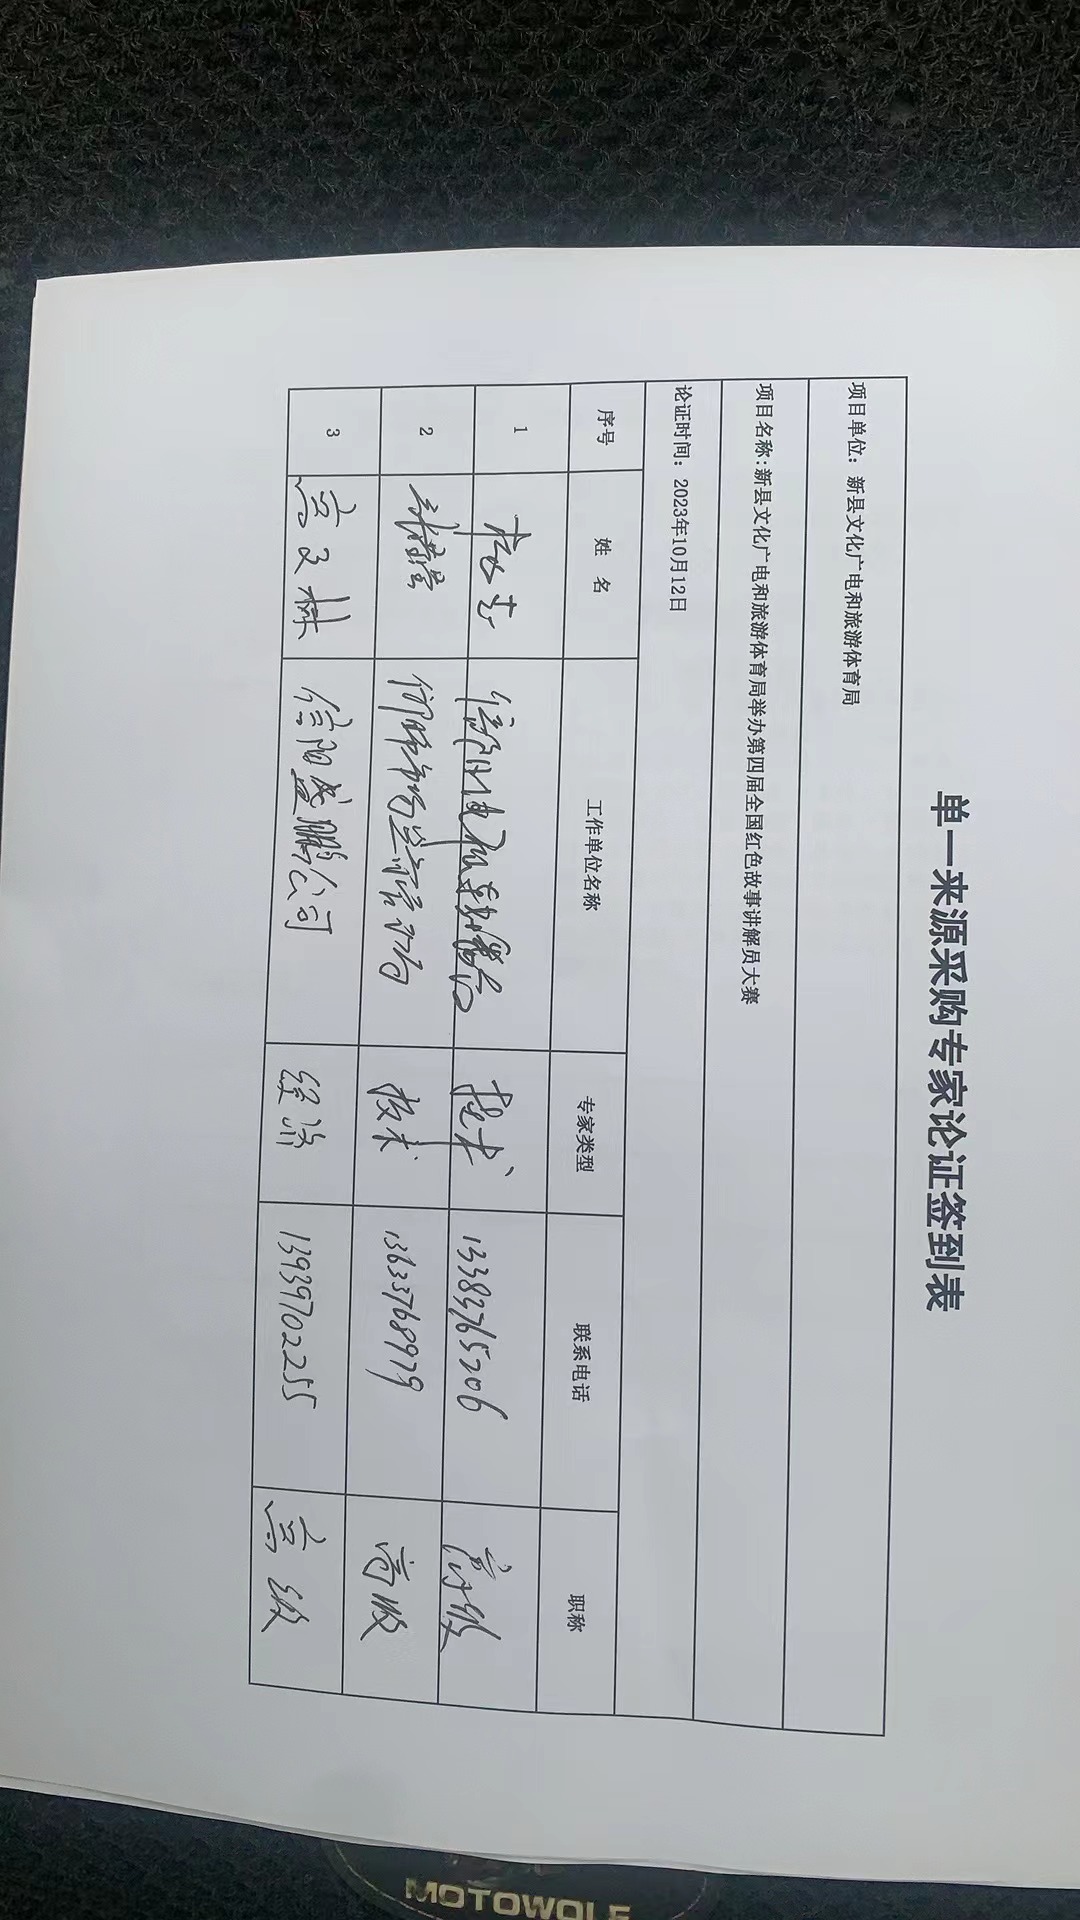 单一来源采购专家论证签到表
项目单位：新县文化广电和旅游体育局
项目名称:新县文化广电和旅游体育局举办第四届全国红色故事讲解员大赛
论证时间：2023年10月12日
序号 姓 名 工作单位名称 专家类型 联系电话 职称
1 技术 13383765206 高级
2 技术 13633768979 高级
3 高文林 信阳盛鹏公司 经济 13939702255 高级
MOTOWOLF